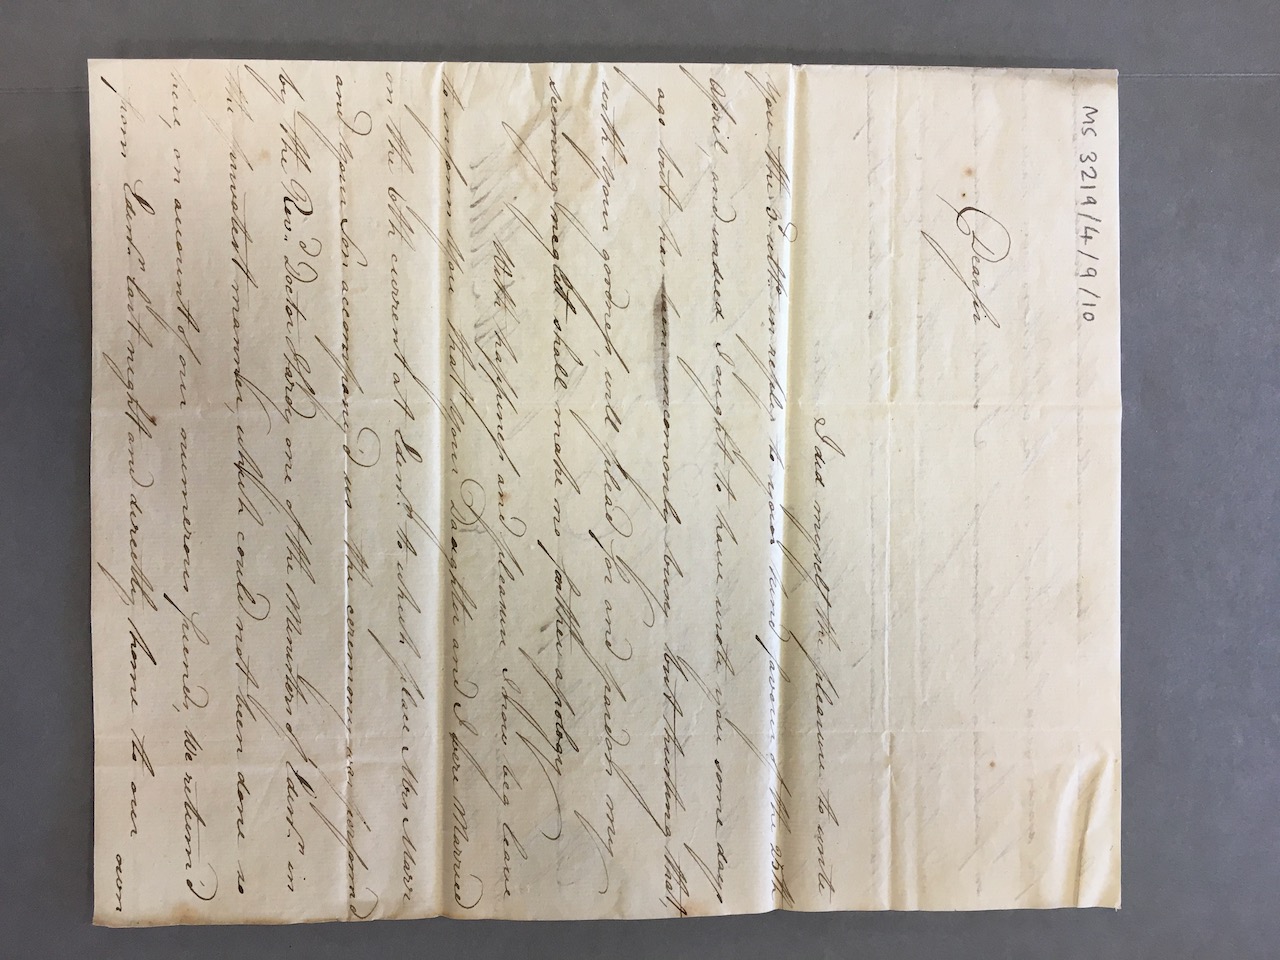 MS 3219/4/9/10
Dear Sir
I did myself the pleasure to write
you the 3.d ulto. in reply to your kind favour of the 25th
April, and indeed I ought to have wrote you some days
ago but have been uncommonly busie but trusting that
with your goodness will plead for and pardon my
seeming neglect shall make no further apology
With happiness and pleasure I now beg leave
to inform you that your Daughter and I were Married
on the 6th current at Edinr. to which place Mrs Marr
and your Son accompany'd us the ceremony was perform'd
by the Rev.d Doctor one of the Ministers of Edinr. in
the privatest manner, which could not been done so
here, on account of our numerous friends, We return'd
from Edinr. last night and directly home to our own